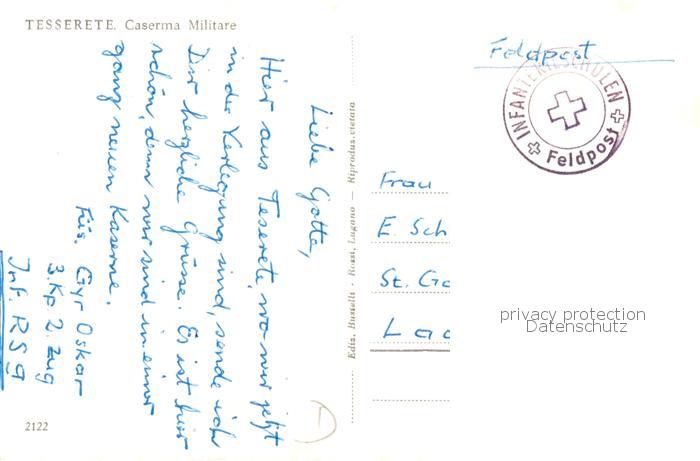 TESSERETE. Caserma Militare
Liebe Gotte,
Hier aus Teserete, wo wir jetzt
in der Verlegung sind, sende ich
Dir herzliche Grüsse. Es ist hier
schön, denn wir sind in einer
ganz neuen Kaserne.
Füs. Gyr Oskar
3. Kp. 2. Zug
Inf RS 9
2122
Ediz. Bustelli - Rossi, Lugano — Riproduz. vietata
Feldpost
INFANTERIESCHULEN
Feldpost
Frau
E. Sch
St. Ga
Lac
privacy protection
Datenschutz